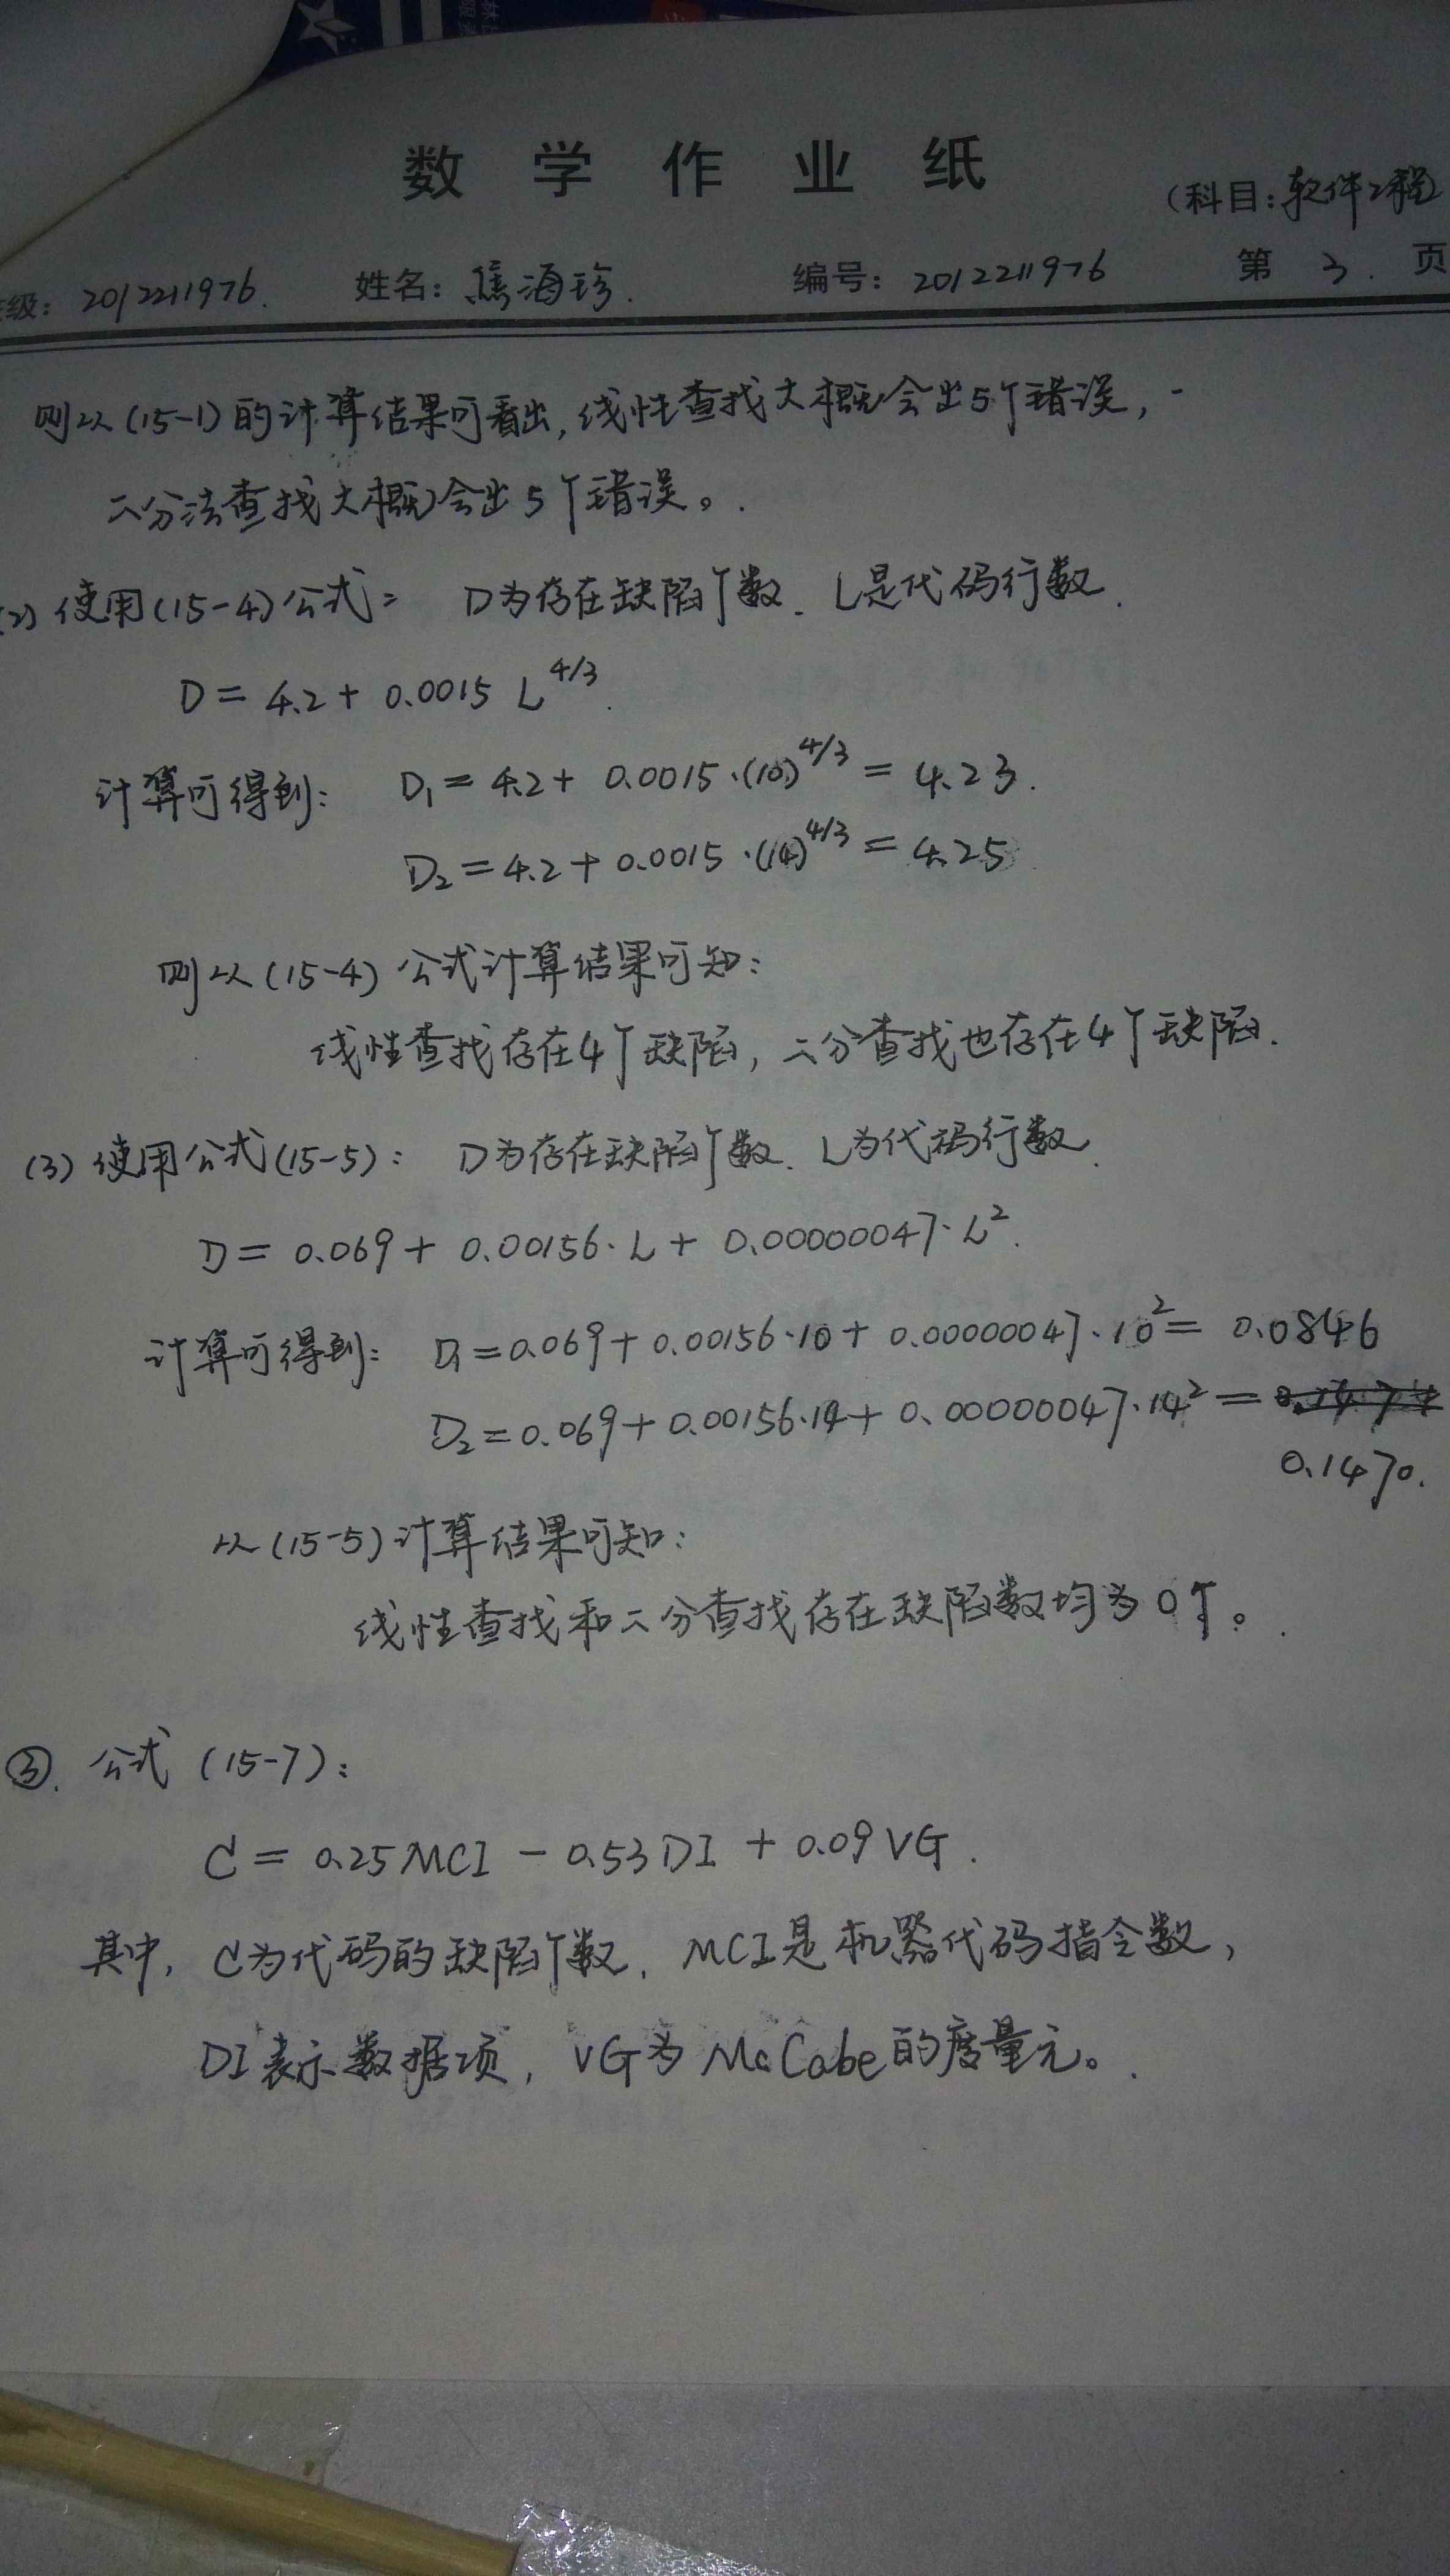 数学作业纸
(科目:软件工程)
级: 2012211976. 姓名: 焦海珍. 编号: 2012211976 第 3. 页
则从(15-1)的计算结果可看出,线性查找大概会出5个错误,
二分法查找大概会出5个错误。
(2) 使用(15-4)公式: D为存在缺陷个数. L是代码行数.
D = 4.2 + 0.0015 L^4/3.
计算可得到: D₁ = 4.2 + 0.0015·(10)^4/3 = 4.23.
D₂ = 4.2 + 0.0015·(14)^4/3 = 4.25
则从(15-4)公式计算结果可知:
线性查找存在4个缺陷, 二分查找也存在4个缺陷.
(3) 使用公式(15-5): D为存在缺陷个数. L为代码行数.
D = 0.069 + 0.00156·L + 0.00000047·L².
计算可得到: D₁ = 0.069 + 0.00156·10 + 0.00000047·10² = 0.0846
D₂ = 0.069 + 0.00156·14 + 0.00000047·14² =
0.1470.
从(15-5)计算结果可知:
线性查找和二分查找存在缺陷数均为0个。
③. 公式 (15-7):
C = 0.25MCI - 0.53DI + 0.09VG.
其中, C为代码的缺陷个数. MCI是机器代码指令数,
DI表示数据项, VG为McCabe的度量元。